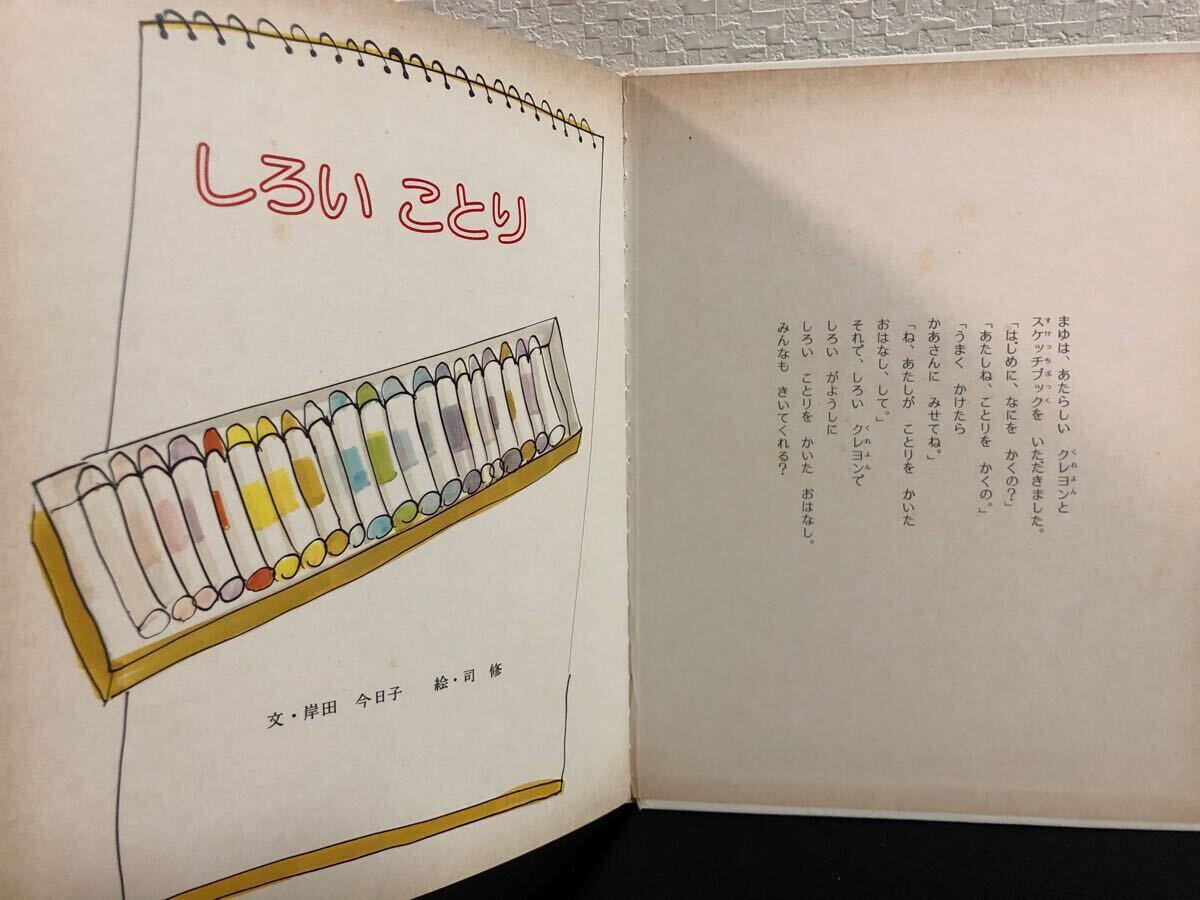 しろい ことり
文・岸田 今日子 絵・司 修
まゆは、あたらしい クレヨンと
スケッチブックを いただきました。
「はじめに、なにを かくの？」
「あたしね、ことりを かくの。」
「うまく かけたら
かあさんに みせてね。」
「ね、あたしが ことりを かいた
おはなし、して。」
それで、しろい クレヨンで
しろい がようしに
しろい ことりを かいた おはなし。
みんなも きいてくれる？